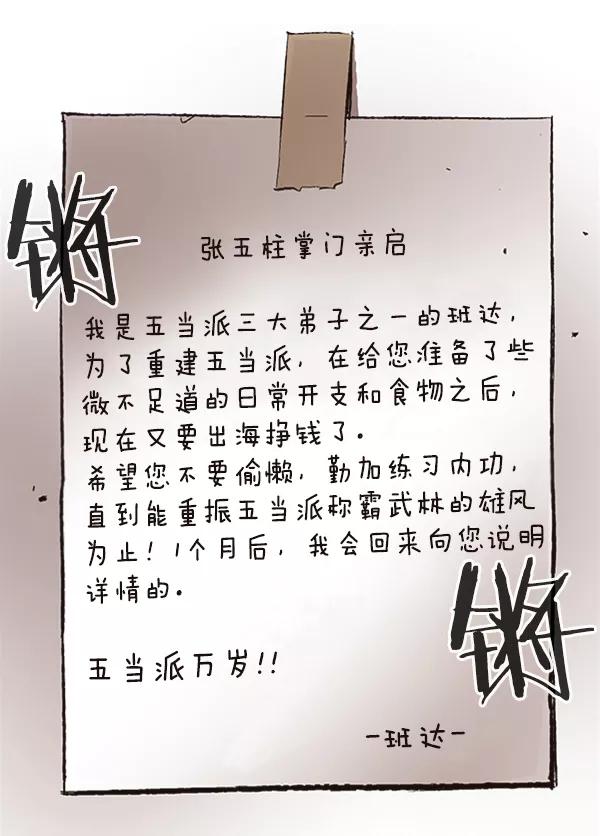 锵
张五柱掌门亲启
我是五当派三大弟子之一的班达,
为了重建五当派, 在给您准备了些
微不足道的日常开支和食物之后,
现在又要出海挣钱了。
希望您不要偷懒, 勤加练习内功,
直到能重振五当派称霸武林的雄风
为止! 1个月后, 我会回来向您说明
详情的。
锵
五当派万岁!!
-班达-